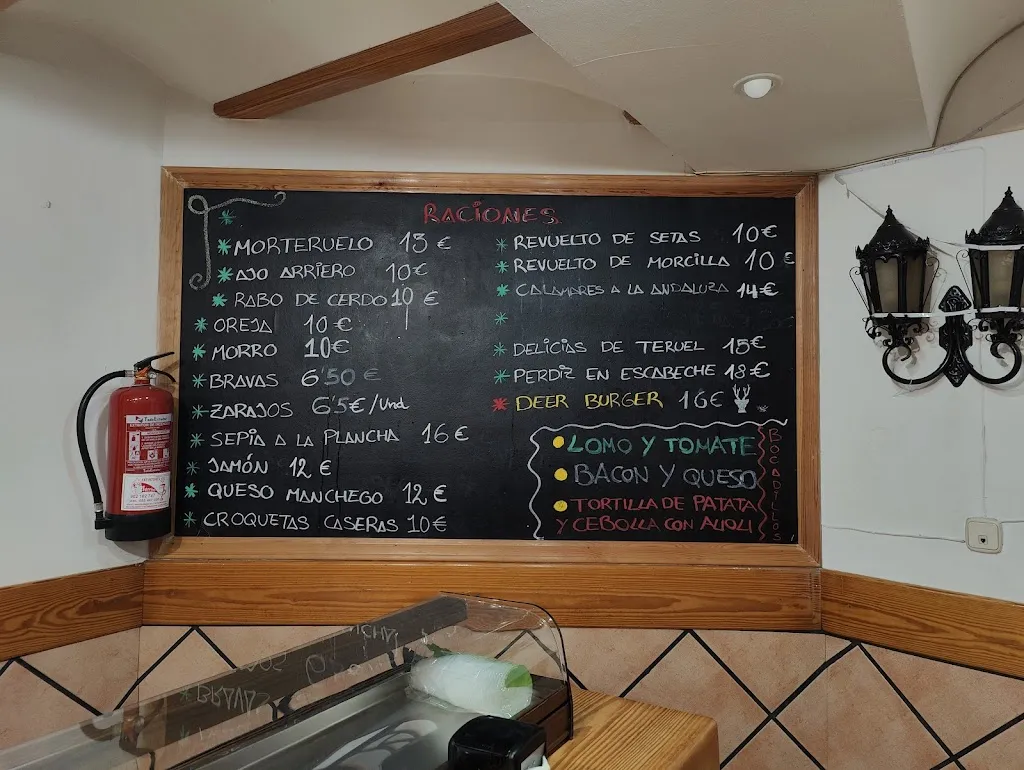 RACIONES
* MORTERUELO 13 €
* AJO ARRIERO 10€
* RABO DE CERDO 10 €
* OREJA 10 €
* MORRO 10€
* BRAVAS 6'50 €
* ZARAJOS 6'5€/Und
* SEPIA A LA PLANCHA 16 €
* JAMÓN 12 €
* QUESO MANCHEGO 12 €
* CROQUETAS CASERAS 10€
* REVUELTO DE SETAS 10€
* REVUELTO DE MORCILLA 10 €
* CALAMARES A LA ANDALUZA 14€
* DELICIAS DE TERUEL 15€
* PERDIZ EN ESCABECHE 18€
* DEER BURGER 16€
BOCADILLOS
LOMO Y TOMATE
BACON Y QUESO
TORTILLA DE PATATA
Y CEBOLLA CON ALIOLI